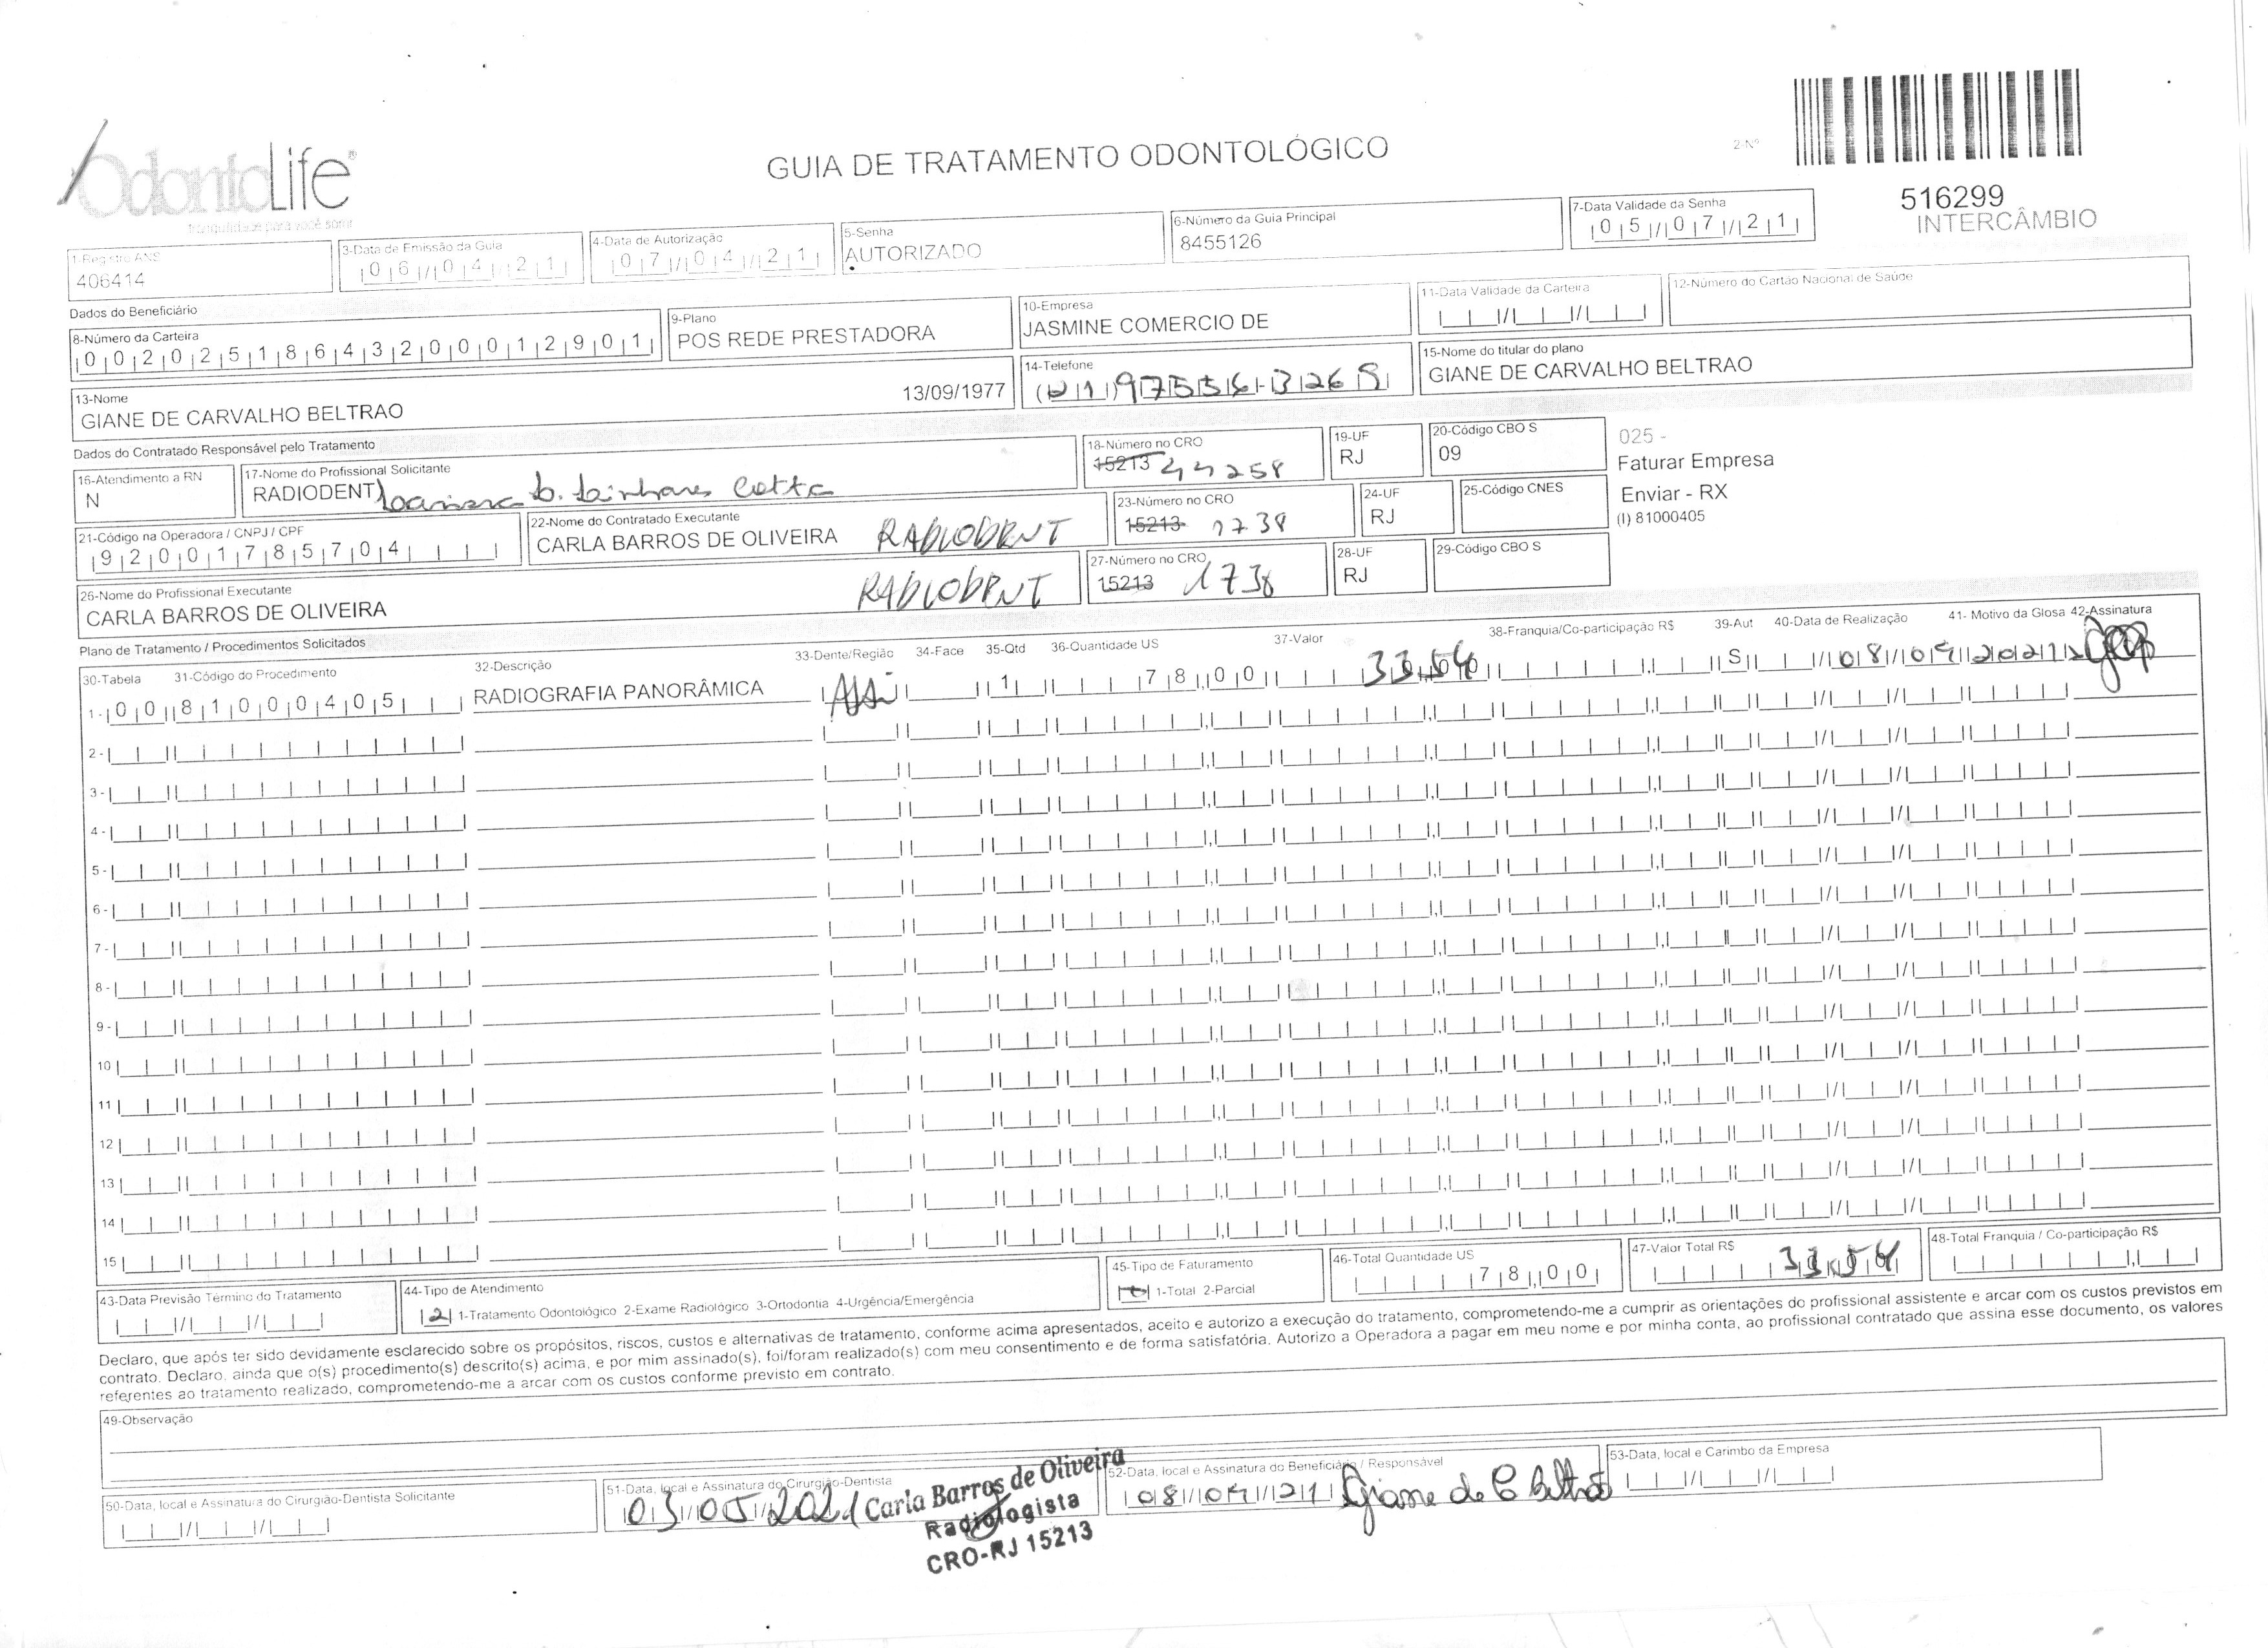 OdontoLife®
tranquilidade para você sorrir
GUIA DE TRATAMENTO ODONTOLÓGICO
2-Nº
516299
INTERCÂMBIO
1-Registro ANS
406414
3-Data de Emissão da Guia
06/04/21
4-Data de Autorização
07/04/21
5-Senha
AUTORIZADO
6-Número da Guia Principal
8455126
7-Data Validade da Senha
05/07/21
Dados do Beneficiário
8-Número da Carteira
00202518643200012901
9-Plano
POS REDE PRESTADORA
10-Empresa
JASMINE COMERCIO DE
11-Data Validade da Carteira
12-Número do Cartão Nacional de Saúde
13-Nome
GIANE DE CARVALHO BELTRAO
13/09/1977
14-Telefone
15-Nome do titular do plano
GIANE DE CARVALHO BELTRAO
Dados do Contratado Responsável pelo Tratamento
16-Atendimento a RN
N
17-Nome do Profissional Solicitante
RADIODENT
18-Número no CRO
15213 44258
19-UF
RJ
20-Código CBO S
09
025 -
Faturar Empresa
Enviar - RX
(I) 81000405
21-Código na Operadora / CNPJ / CPF
92001785704
22-Nome do Contratado Executante
CARLA BARROS DE OLIVEIRA RADIODENT
23-Número no CRO
15213 1738
24-UF
RJ
25-Código CNES
26-Nome do Profissional Executante
CARLA BARROS DE OLIVEIRA RADIODENT
27-Número no CRO
15213 1738
28-UF
RJ
29-Código CBO S
Plano de Tratamento / Procedimentos Solicitados
30-Tabela 31-Código do Procedimento 32-Descrição 33-Dente/Região 34-Face 35-Qtd 36-Quantidade US 37-Valor 38-Franquia/Co-participação R$ 39-Aut 40-Data de Realização 41- Motivo da Glosa 42-Assinatura
1- 00 81000405 RADIOGRAFIA PANORÂMICA 1 78,00 33,54 S 08/04/2021
2-
3-
4-
5-
6-
7-
8-
9-
10
11
12
13
14
15
43-Data Previsão Término do Tratamento
44-Tipo de Atendimento
2 1-Tratamento Odontológico 2-Exame Radiológico 3-Ortodontia 4-Urgência/Emergência
45-Tipo de Faturamento
1-Total 2-Parcial
46-Total Quantidade US
78,00
47-Valor Total R$
33,54
48-Total Franquia / Co-participação R$
Declaro, que após ter sido devidamente esclarecido sobre os propósitos, riscos, custos e alternativas de tratamento, conforme acima apresentados, aceito e autorizo a execução do tratamento, comprometendo-me a cumprir as orientações do profissional assistente e arcar com os custos previstos em
contrato. Declaro, ainda que o(s) procedimento(s) descrito(s) acima, e por mim assinado(s), foi/foram realizado(s) com meu consentimento e de forma satisfatória. Autorizo a Operadora a pagar em meu nome e por minha conta, ao profissional contratado que assina esse documento, os valores
referentes ao tratamento realizado, comprometendo-me a arcar com os custos conforme previsto em contrato.
49-Observação
50-Data, local e Assinatura do Cirurgião-Dentista Solicitante
51-Data, local e Assinatura do Cirurgião-Dentista
03/05/2021
Carla Barros de Oliveira
Radiologista
CRO-RJ 15213
52-Data, local e Assinatura do Beneficiário / Responsável
08/04/21 Giane de C Beltrão
53-Data, local e Carimbo da Empresa